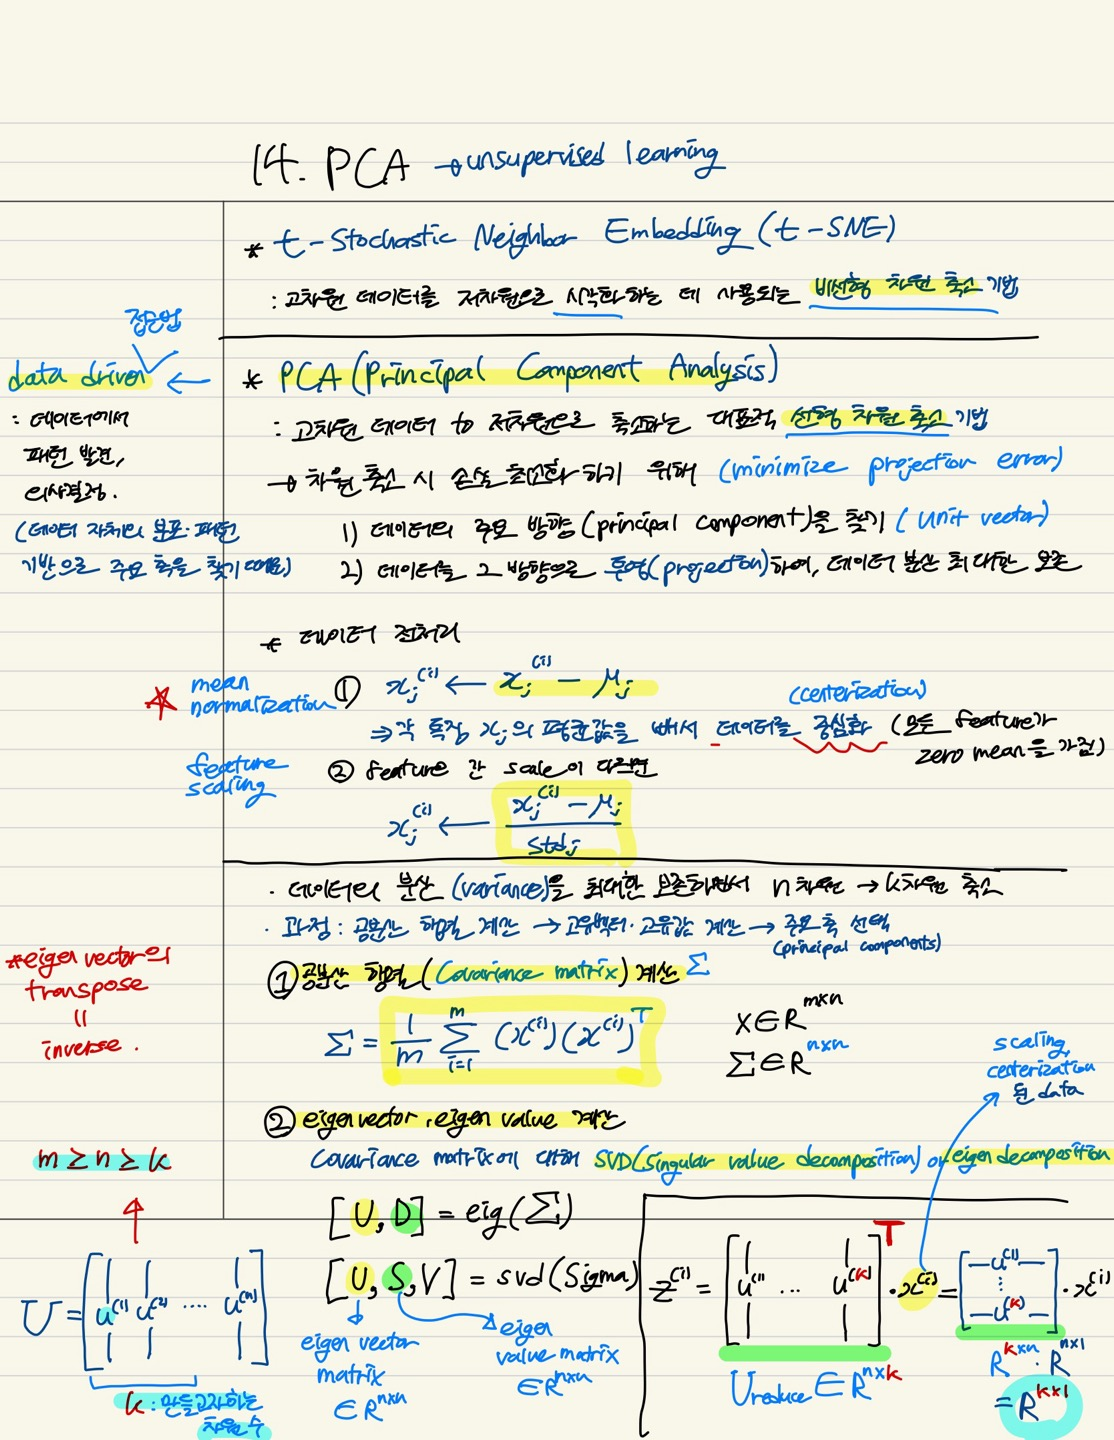 14. PCA → unsupervised learning
* t-Stochastic Neighbor Embedding (t-SNE)
: 고차원 데이터를 저차원으로 시각화하는 데 사용되는 비선형 차원 축소 기법
접근법
data driven ←
: 데이터에서
패턴 발견,
의사결정.
(데이터 자체의 분포·패턴
기반으로 주요 축을 찾기 때문)
* PCA (Principal Component Analysis)
: 고차원 데이터 to 저차원으로 축소하는 대표적 선형 차원 축소 기법
→ 차원 축소 시 손실 최소화 하기 위해 (minimize projection error)
1) 데이터의 주요 방향 (principal component)을 찾기 (unit vector)
2) 데이터를 그 방향으로 투영(projection)하여, 데이터 분산 최대한 보존
* 데이터 전처리
☆ mean
normalization
① xⱼ⁽ⁱ⁾ ← xⱼ⁽ⁱ⁾ - μⱼ
(centerization)
⇒ 각 특징 xⱼ의 평균값을 빼서 데이터를 중심화 (모든 feature가
zero mean을 가짐)
feature
scaling
② feature 간 scale이 다르면
xⱼ⁽ⁱ⁾ ← (xⱼ⁽ⁱ⁾ - μⱼ) / stdⱼ
· 데이터의 분산 (variance)을 최대한 보존하면서 n차원 → k차원 축소
· 과정 : 공분산 행렬 계산 → 고유벡터·고유값 계산 → 주요 축 선택
(principal components)
*eigen vector의
transpose
||
inverse.
① 공분산 행렬 (Covariance matrix) 계산 Σ
Σ = 1/m Σᵢ₌₁ᵐ (x⁽ⁱ⁾)(x⁽ⁱ⁾)ᵀ
X ∈ R^{m×n}
Σ ∈ R^{n×n}
scaling,
centerization
된 data
② eigen vector, eigen value 계산
m ≥ n ≥ k
Covariance matrix에 대해 SVD(singular value decomposition) or eigen decomposition
[U, D] = eig(Σ)
[U, S, V] = svd(Sigma)
eigen vector
matrix
∈ R^{n×n}
eigen
value matrix
∈ R^{n×n}
U = [u⁽¹⁾ u⁽²⁾ ···· u⁽ⁿ⁾]
k : 만들고자하는
차원 수
z⁽ⁱ⁾ = [u⁽¹⁾ ... u⁽ᵏ⁾]ᵀ · x⁽ⁱ⁾ = [—u⁽¹⁾— ⋮ —u⁽ᵏ⁾—] · x⁽ⁱ⁾
Ureduce ∈ R^{n×k}
R^{k×n} · R^{n×1}
= R^{k×1}